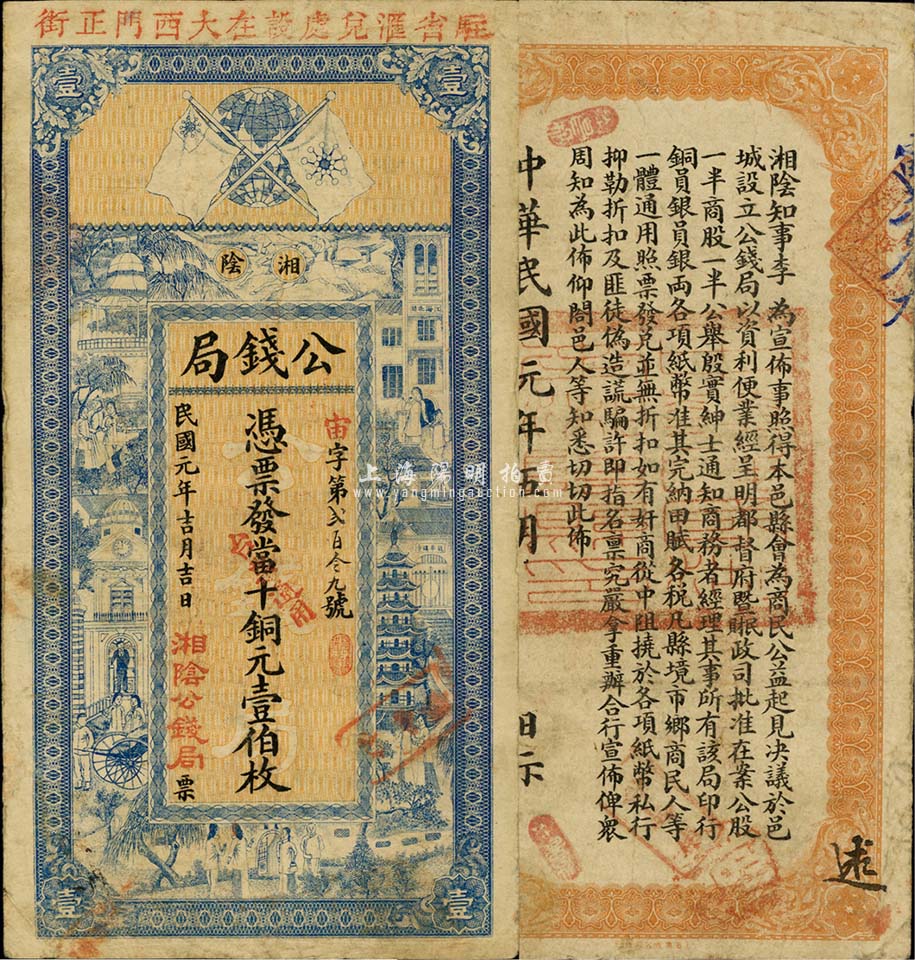 駐省滙兌處設在大西門正街
壹
壹
湘陰
江海北關
公錢局
宙字第貳百令九號
憑票發當十銅元壹伯枚
民國元年吉月吉日
湘陰公錢局票
壹
壹
上海陽明拍賣
www.yangmingauction.com
湘陰知事李 為宣佈事照得本邑縣會為商民公益起見决議於邑
城設立公錢局以資利便業經呈明都督府暨賑政司批准在案公股
一半商股一半公舉殷實紳士通知商務者經理其事所有該局印行
銅員銀員銀両各項紙幣准其完納田賦各稅凡縣境市鄉商民人等
一體通用照票發兌並無折扣如有奸商從中阻撓於各項紙幣私行
抑勒折扣及匪徒偽造謊騙許即指名禀究嚴拿重辦合行宣佈俾衆
周知為此佈仰閤邑人等知悉切切此佈
中華民國元年五月 日示